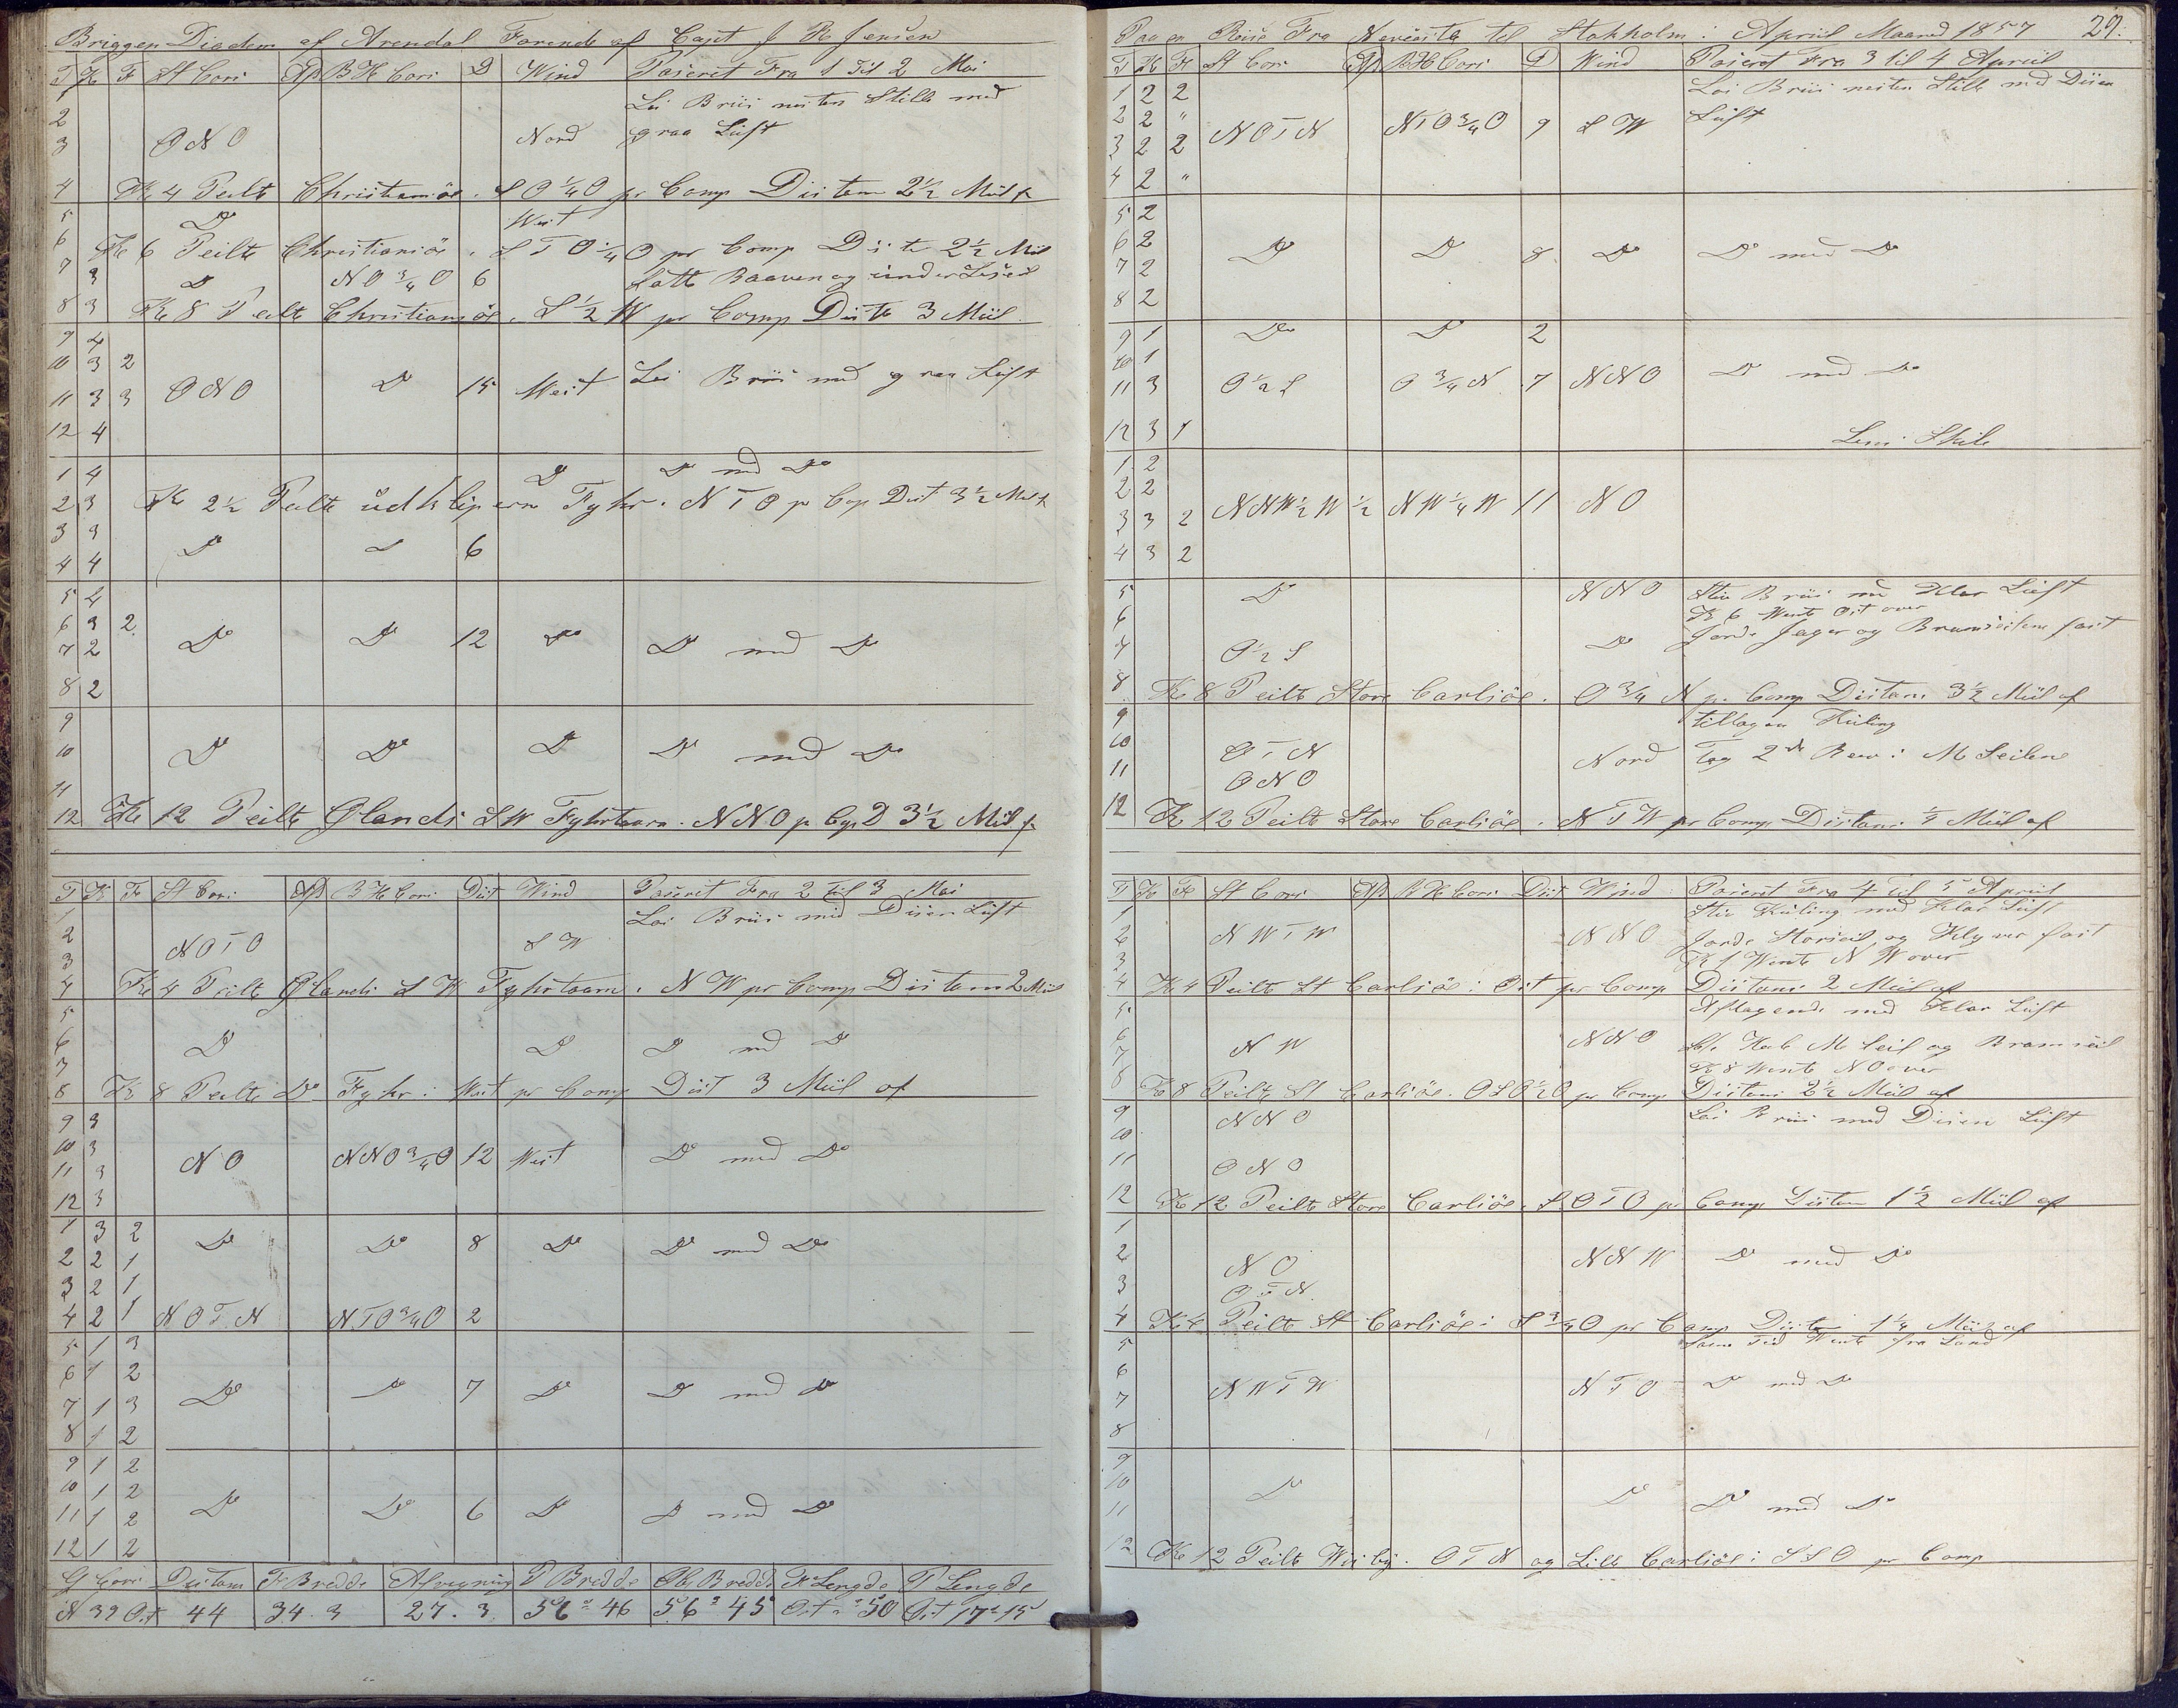 Briggen Diadem af Arendal Förende af Capt J H Jensen
T K F St Cors Afd B H Cors D Wind Paseret Fra 1 Til 2 Mai
1 Lai Briis nesten Stille med
2
3 O N O Nord graa Luft
4 Kl 4 Peilte Christiansöe i S O ¼ O pr Comp Distans 2½ Miil
5 Do West
6 Kl 6 Peilte Christiansöe i S T O ¼ O pr Comp Dist 2½ Miil
7 3 Do N O ¾ O 6 Satte Baaven og under Leseil
8 3 Kl 8 Peilte Christiansöe i S ½ W pr Comp Dist 3 Miil
9 4
10 3 2
11 3 3 O N O Do 15 West Lai Briis med graa Luft
12 4
1 4 Do Do med Do
2 3 Kl 2½ Peilte Fyhr i N T O pr Cop Dist 3½ Miil
3 3
4 4 Do Do 6
5 4
6 3 2
7 2 Do Do 12 Do Do med Do
8 2
9
10 Do Do Do Do med Do
11
12 Kl 12 Peilte Ølands S W Fyhrtaarn i N N O pr Cop D 3½ Miil
T K F St Cors Afd B H Cors Dist Wind Paseret Fra 2 til 3 Mai
1 Lai Briis med Disen Luft
2 N O T O S W
3
4 Kl 4 Peilte Ølands S W Fyhrtaarn i N W pr Comp Distans 2 Miil
5
6 Do Do Do med Do
7
8 Kl 8 Peilte Do Fyhr i West pr Comp Dist 3 Miil af
9 3
10 3
11 3 N O N N O ¾ O 12 West Do med Do
12 3
1 3 2 Do Do 8 Do Do med Do
2 2 1
3 2 1
4 2 1 N O T N N T O ¾ O 2
5 1 3
6 1 2
7 1 3 Do Do 7 Do Do med Do
8 1 2
9 1 2
10 1 2
11 1 2 Do Do 6 Do Do med Do
12 1 2
G Cors Distans F Bredde Afvegning P Bredde Obs Bredde F Lengde P Lengde
N 39 Ost 44 34.3 27.3 56° 46 56° 45 Ost 50 Ost 17° 15
Paa en Reise Fra til Stokholm i Apriil Maaned 1857 29.
T K F St Cors Afd B H Cors D Wind Paseret Fra 3 til 4 Apriil
1 2 2 Lai Briis nesten Stille med Disen
2 2 " N O T N N T O ¾ O 9 S W Luft
3 2 2
4 2 "
5 2
6 2 Do Do 8 Do Do med Do
7 2
8 2
9 1 Do Do 2
10 1
11 3 O ½ S O ¾ N 7 N N O Do med Do
12 3 1
1 2
2 2
3 3 2 N N W ½ W ½ N W ¼ W 11 N O
4 3 2
5 Do N N O Stiv Briis med Klar Luft
6 Kl 6 Wente Ost over
7 O ½ S Do Jorde Jager og Bramseilene fast
8 Kl 8 Peilte Store Carlsöe i O ¾ N pr Comp Distans 3½ Miil af
9 tillagen Kuling
10 O T N Nord Tog 2de Rev i M Seilene
11 O N O
12 Kl 12 Peilte Store Carlsöe i N T W pr Comp Distans ½ Miil af
T K F St Cors Afd B H Cors Dist Wind Paseret Fra 4 Til 5 Apriil
1 Stiv Kuling med Klar Luft
2 N W T W N N O Jorde Storseil og Klyver fast
3 Kl 1 Wente N W over
4 Kl 4 Peilte St Carlsöe i Ost pr Comp Distans 2 Miil af
5 Aftagende med Klar Luft
6 N W N N O M Seil og Bramseil
7 Kl 8 Wente N O over
8 Kl 8 Peilte St Carlsöe i O S O ½ O pr Comp Distans 2½ Miil af
9 N N O Lai Briis med Disen Luft
10
11 O N O
12 Kl 12 Peilte Store Carlsöe i S O T O pr Comp Distans 1½ Miil af
1
2 N O N N W Do med Do
3 O T N
4 Kl 4 Peilte St Carlsöe i S ¾ O pr Comp Distans 1¼ Miil af
5 Same Tid Wente fra Land
6
7 N W T W N T O Do med Do
8
9
10 Do Do Do med Do
11
12 Kl 12 Peilte Wisby i O T N og Lille Carlsöe i S S O pr Comp